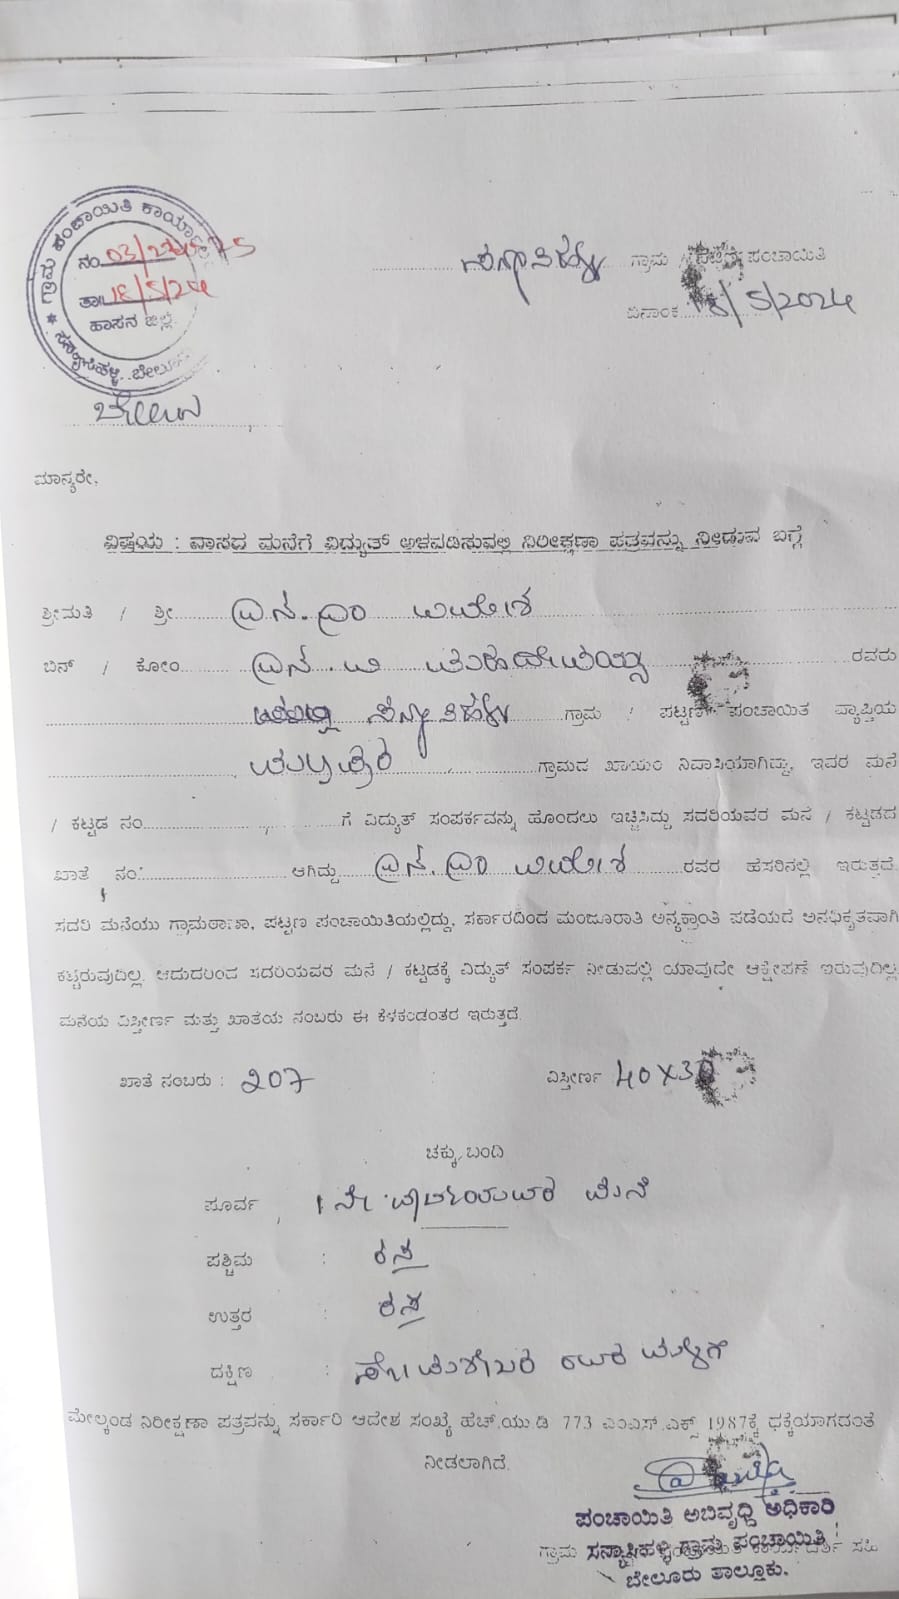 ಗ್ರಾಮ ಪಂಚಾಯಿತಿ ಕಾರ್ಯಾಲಯ
ನಂ 03/
ತಾ 18/5/24
ಹಾಸನ ಜಿಲ್ಲೆ
ಸನ್ಯಾಸಿಹಳ್ಳಿ, ಬೇಲೂರು
ಸನ್ಯಾಸಿಹಳ್ಳಿ ಗ್ರಾಮ / ಪಟ್ಟಣ ಪಂಚಾಯಿತಿ
ದಿನಾಂಕ 18/5/2024
ಬೇಲೂರು
ಮಾನ್ಯರೇ,
ವಿಷಯ : ವಾಸದ ಮನೆಗೆ ವಿದ್ಯುತ್ ಅಳವಡಿಸುವಲ್ಲಿ ನಿರೀಕ್ಷಣಾ ಪತ್ರವನ್ನು ನೀಡುವ ಬಗ್ಗೆ
ಶ್ರೀಮತಿ / ಶ್ರೀ ಎನ್.ಎಂ
ಬಿನ್ / ಕೋಂ ಎನ್. ರವರು
ಸನ್ಯಾಸಿಹಳ್ಳಿ ಗ್ರಾಮ / ಪಟ್ಟಣ ಪಂಚಾಯಿತ ವ್ಯಾಪ್ತಿಯ
ಗ್ರಾಮದ ಖಾಯಂ ನಿವಾಸಿಯಾಗಿದ್ದು, ಇವರ ಮನೆ
/ ಕಟ್ಟಡ ನಂ ಗೆ ವಿದ್ಯುತ್ ಸಂಪರ್ಕವನ್ನು ಹೊಂದಲು ಇಚ್ಛಿಸಿದ್ದು ಸದರಿಯವರ ಮನೆ / ಕಟ್ಟಡದ
ಖಾತೆ ನಂ: ಆಗಿದ್ದು ಎನ್.ಎಂ ರವರ ಹೆಸರಿನಲ್ಲಿ ಇರುತ್ತದೆ.
ಸದರಿ ಮನೆಯು ಗ್ರಾಮಠಾಣಾ, ಪಟ್ಟಣ ಪಂಚಾಯಿತಿಯಲ್ಲಿದ್ದು, ಸರ್ಕಾರದಿಂದ ಮಂಜೂರಾತಿ ಅನ್ಯಕ್ರಾಂತಿ ಪಡೆಯದೆ ಅನಧಿಕೃತವಾಗಿ
ಕಟ್ಟಿರುವುದಿಲ್ಲ. ಆದುದರಿಂದ ಸದರಿಯವರ ಮನೆ / ಕಟ್ಟಡಕ್ಕೆ ವಿದ್ಯುತ್ ಸಂಪರ್ಕ ನೀಡುವಲ್ಲಿ ಯಾವುದೇ ಆಕ್ಷೇಪಣೆ ಇರುವುದಿಲ್ಲ
ಮನೆಯ ವಿಸ್ತೀರ್ಣ ಮತ್ತು ಖಾತೆಯ ನಂಬರು ಈ ಕೆಳಕಂಡಂತರ ಇರುತ್ತದೆ.
ಖಾತೆ ನಂಬರು : 207 ವಿಸ್ತೀರ್ಣ 40X30
ಚಕ್ಕು ಬಂದಿ
ಪೂರ್ವ : ಮನೆ
ಪಶ್ಚಿಮ : ರಸ್ತೆ
ಉತ್ತರ : ರಸ್ತೆ
ದಕ್ಷಿಣ :
ಮೇಲ್ಕಂಡ ನಿರೀಕ್ಷಣಾ ಪತ್ರವನ್ನು ಸರ್ಕಾರಿ ಆದೇಶ ಸಂಖ್ಯೆ ಹೆಚ್.ಯು.ಡಿ 773 ಎಂಎಸ್.ಎಕ್ಸ್ 1987ಕ್ಕೆ ಧಕ್ಕೆಯಾಗದಂತೆ
ನೀಡಲಾಗಿದೆ.
ಪಂಚಾಯಿತಿ ಅಭಿವೃದ್ಧಿ ಅಧಿಕಾರಿ
ಗ್ರಾಮ ಸನ್ಯಾಸಿಹಳ್ಳಿ ಗ್ರಾಮ ಪಂಚಾಯಿತಿ ಸಹಿ
ಬೇಲೂರು ತಾಲ್ಲೂಕು.